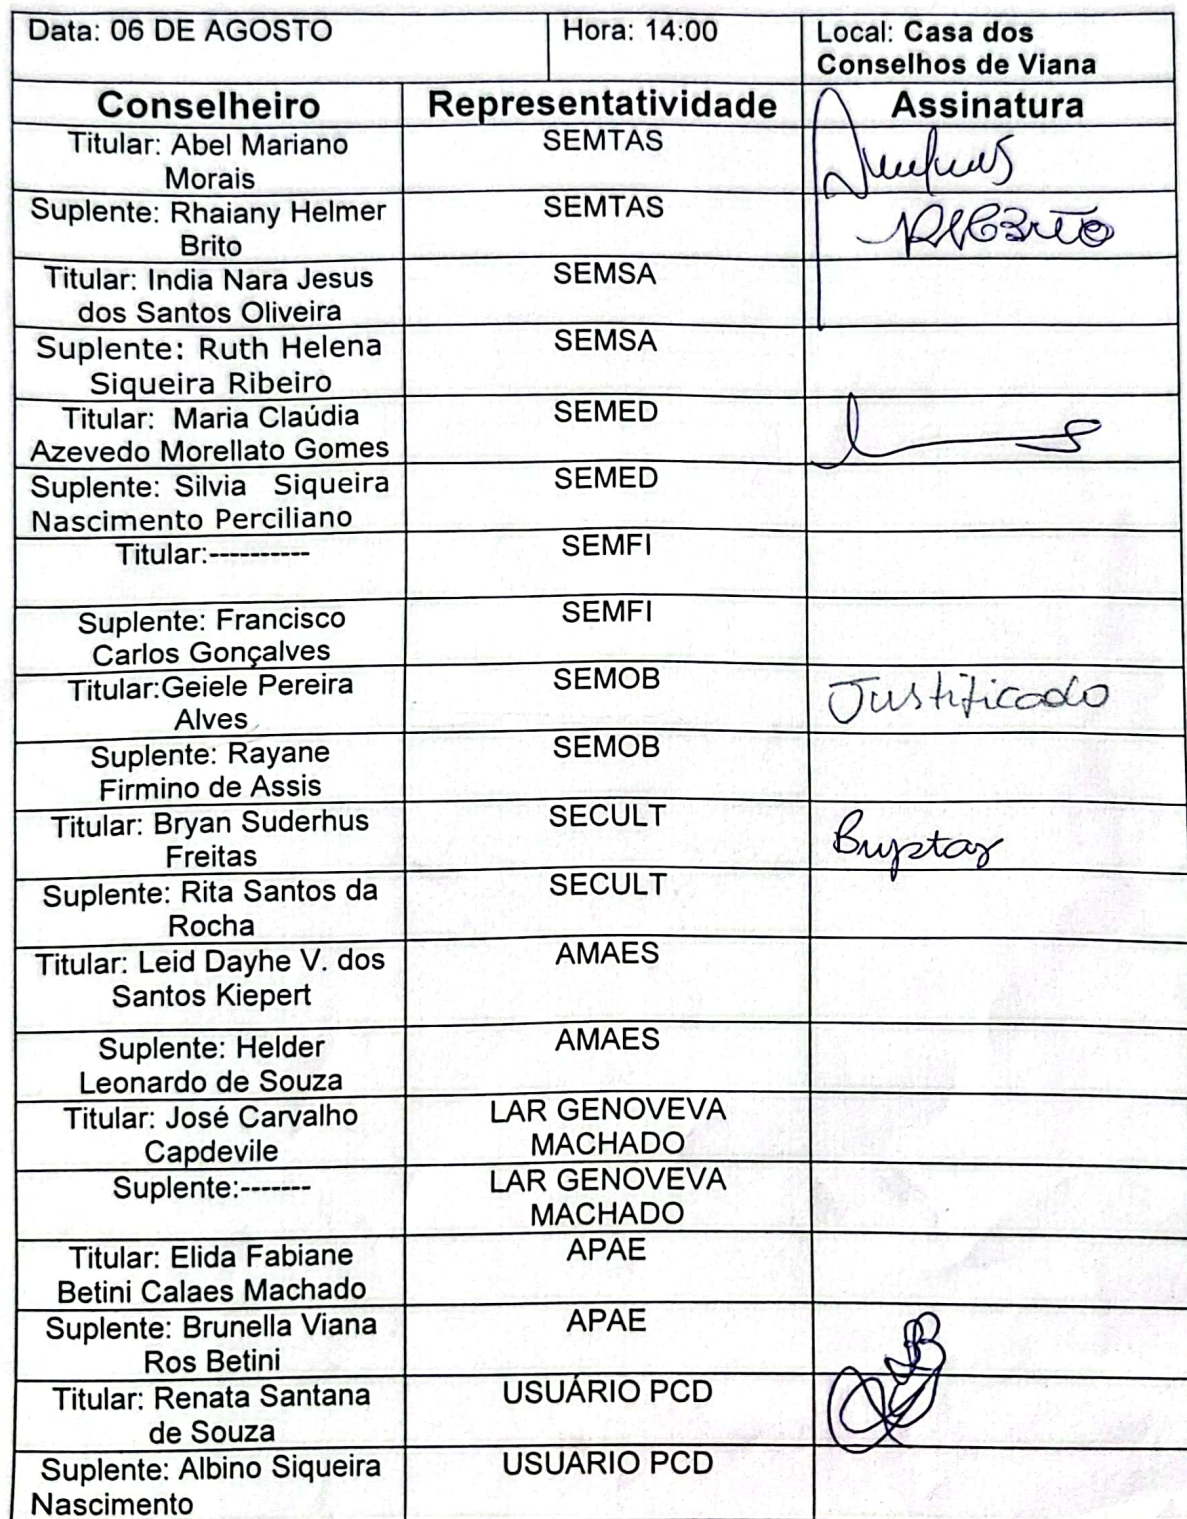 Data: 06 DE AGOSTO
Hora: 14:00
Local: Casa dos
Conselhos de Viana
Conselheiro
Representatividade
Assinatura
Titular: Abel Mariano
Morais
SEMTAS
Suplente: Rhaiany Helmer
Brito
SEMTAS
Titular: India Nara Jesus
dos Santos Oliveira
SEMSA
Suplente: Ruth Helena
Siqueira Ribeiro
SEMSA
Titular: Maria Claúdia
Azevedo Morellato Gomes
SEMED
Suplente: Silvia Siqueira
Nascimento Perciliano
SEMED
Titular:----------
SEMFI
Suplente: Francisco
Carlos Gonçalves
SEMFI
Titular:Geiele Pereira
Alves
SEMOB
Justificado
Suplente: Rayane
Firmino de Assis
SEMOB
Titular: Bryan Suderhus
Freitas
SECULT
Suplente: Rita Santos da
Rocha
SECULT
Titular: Leid Dayhe V. dos
Santos Kiepert
AMAES
Suplente: Helder
Leonardo de Souza
AMAES
Titular: José Carvalho
Capdevile
LAR GENOVEVA
MACHADO
Suplente:-------
LAR GENOVEVA
MACHADO
Titular: Elida Fabiane
Betini Calaes Machado
APAE
Suplente: Brunella Viana
Ros Betini
APAE
Titular: Renata Santana
de Souza
USUÁRIO PCD
Suplente: Albino Siqueira
Nascimento
USUÁRIO PCD